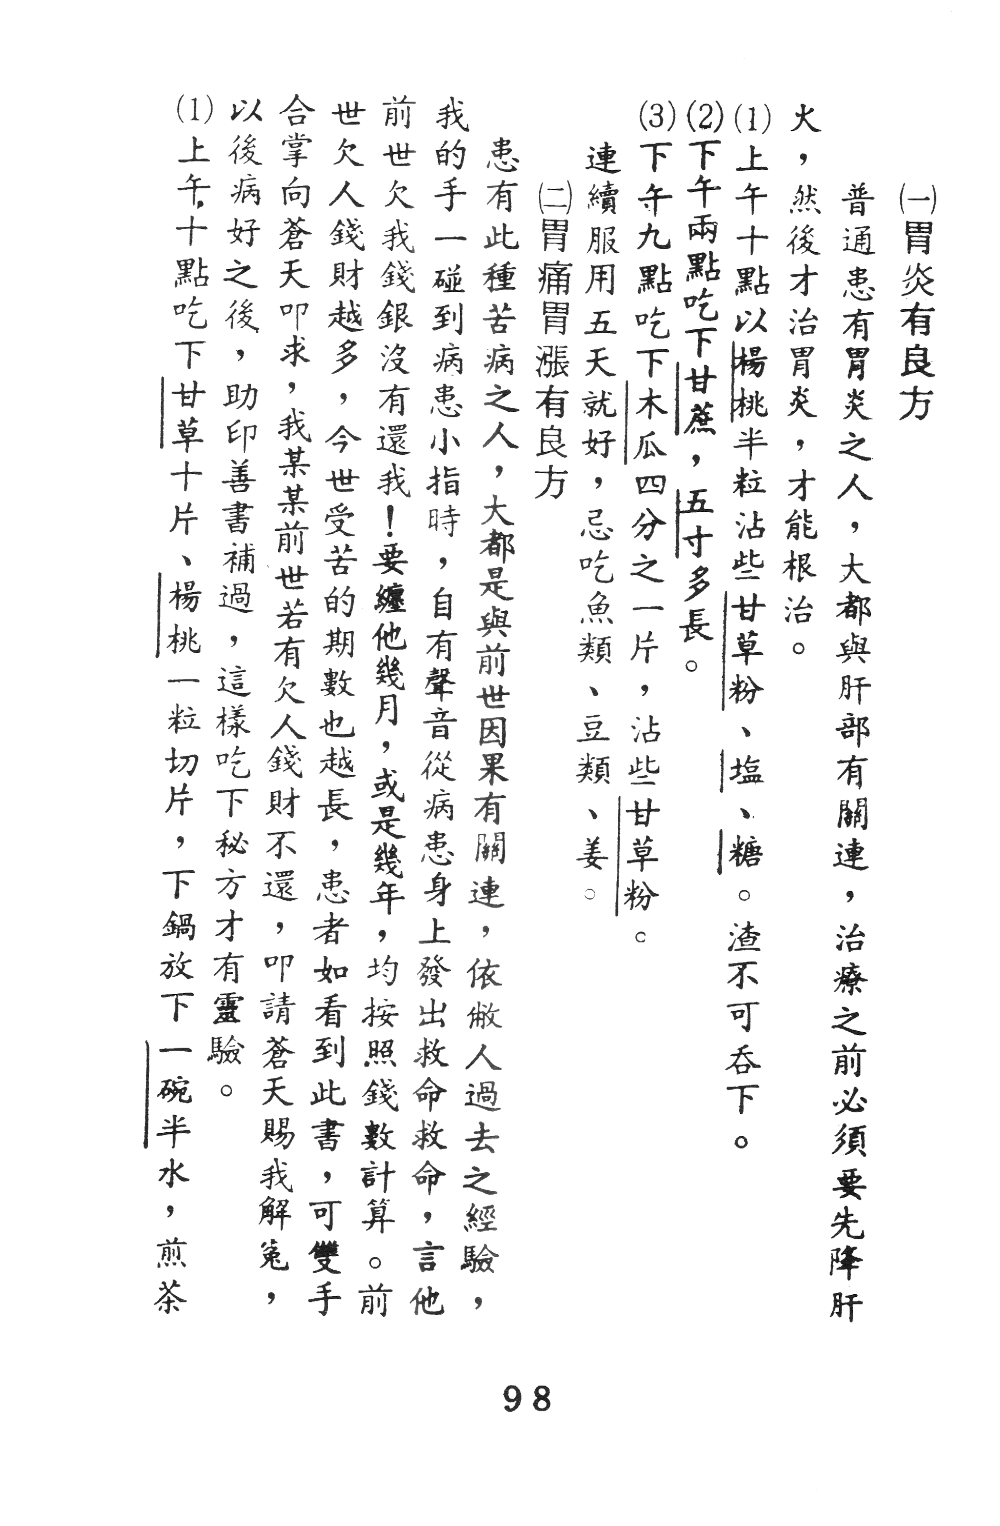 ㈠胃炎有良方
普通患有胃炎之人，大都與肝部有關連，治療之前必須要先降肝
火，然後才治胃炎，才能根治。
(1)上午十點以楊桃半粒沾些甘草粉、塩、糖。渣不可吞下。
(2)下午兩點吃下甘蔗，五寸多長。
(3)下午九點吃下木瓜四分之一片，沾些甘草粉。
連續服用五天就好，忌吃魚類、豆類、姜。
㈡胃痛胃漲有良方
患有此種苦病之人，大都是與前世因果有關連，依敝人過去之經驗，
我的手一碰到病患小指時，自有聲音從病患身上發出救命救命，言他
前世欠我錢銀沒有還我！要纏他幾月，或是幾年，均按照錢數計算。前
世欠人錢財越多，今世受苦的期數也越長，患者如看到此書，可雙手
合掌向蒼天叩求，我某某前世若有欠人錢財不還，叩請蒼天賜我解冤，
以後病好之後，助印善書補過，這樣吃下秘方才有靈驗。
(1)上午十點吃下甘草十片、楊桃一粒切片，下鍋放下一碗半水，煎茶
98